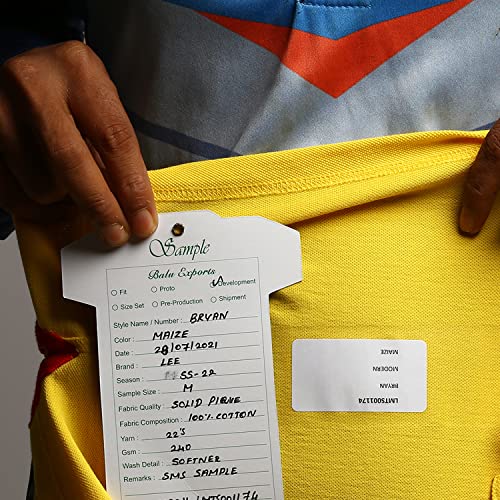 Sample
Balu Exports
Fit Proto Development
Size Set Pre-Production Shipment
Style Name / Number : BRYAN
Color : MAIZE
Date : 28/07/2021
Brand : LEE
Season : SS-22
Sample Size : M
Fabric Quality : SOLID PIQUE
Fabric Composition : 100% COTTON
Yarn : 22'S
Gsm : 240
Wash Detail : SOFTNER
Remarks : SMS SAMPLE
LMTS001174
MAIZE
MODERN
BRYAN
LMTS001174